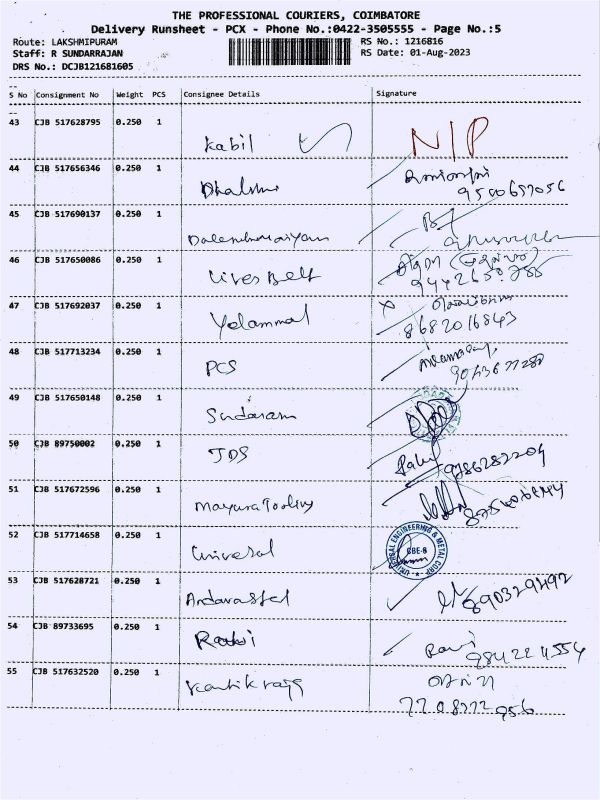 THE PROFESSIONAL COURIERS, COIMBATORE
Delivery Runsheet - PCX - Phone No.:0422-3505555 - Page No.:5
Route: LAKSHMIPURAM RS No.: 1216816
Staff: R SUNDARRAJAN RS Date: 01-Aug-2023
DRS No.: DCJB121681605
S No Consignment No Weight PCS Consignee Details Signature
43 CJB 517628795 0.250 1 Kabil N/P
44 CJB 517656346 0.250 1
9500657056
45 CJB 517690137 0.250 1
46 CJB 517650086 0.250 1
47 CJB 517692037 0.250 1 Yelammal
8682016843
48 CJB 517713234 0.250 1 PCS
49 CJB 517650148 0.250 1 Sundaram
50 CJB 89750002 0.250 1 JDS 9786282204
51 CJB 517672596 0.250 1 Mayura Tooling
52 CJB 517714658 0.250 1 Universal UNIVERSAL ENGINEERING & METAL CORP. CBE-8
53 CJB 517628721 0.250 1 8903294492
54 CJB 89733695 0.250 1 Ravi
9842211554
55 CJB 517632520 0.250 1 Kartik raja
7708772956